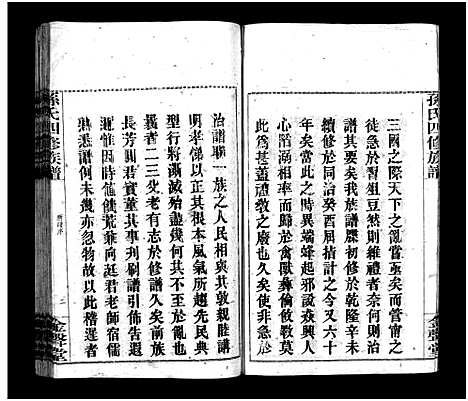 孫氏四修族譜
金聲堂
三國之際天下之亂嘗亟矣而管甯之
徒急於習俎豆然則維禮者奈何則治
譜其要矣我族譜牒初修於乾隆辛未
續修於同治癸酉屈指計之今又六十
年矣當此之時異端蜂起邪說猋興人
心滔溺相率而歸於禽獸彝倫攸斁莫
此為甚蓋禮教之廢也久矣使非急於
治譜聯一族之人民相與其敦親睦講
明孝悌以正其根本風氣所趨先民典
型行將漸滅殆盡幾何其不至於亂也
曩者二三父老有志於修譜久矣前族
長芳圓君實董其事判刷譜引佈告遐
邇惟因時值饑荒雖向誕君老師宿儒
熟悉譜例未幾亦忽物故以此稽遲者
孫氏四修族譜
金聲堂